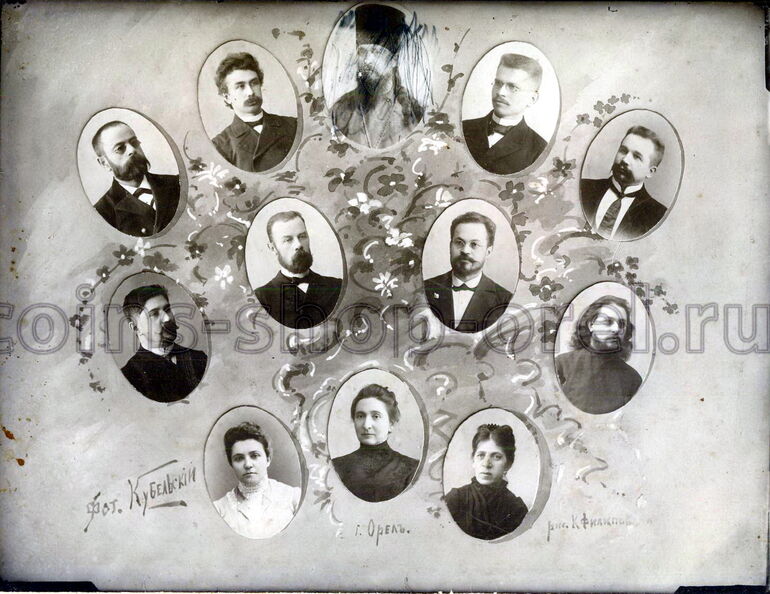 coins-shop-orel.ru
Фот. Кубельскій
г. Орелъ.
рис. К Филипов